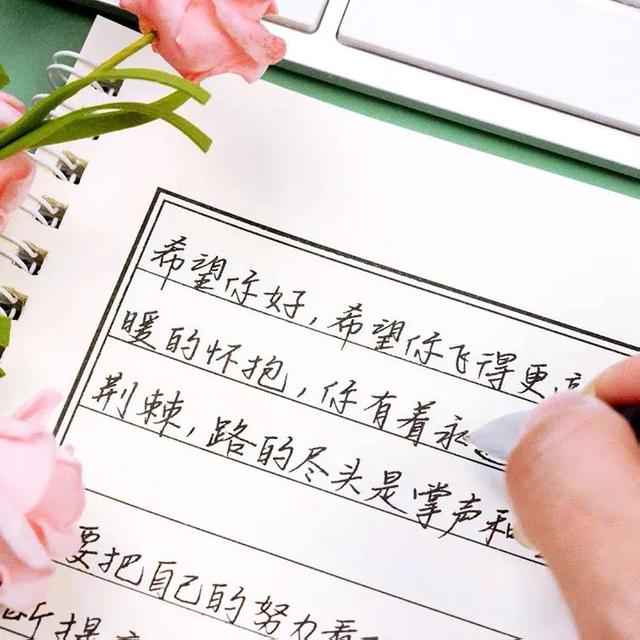 希望你好,希望你飞得更高
暖的怀抱,你有着永
荆棘,路的尽头是掌声和
要把自己的努力看
断提高